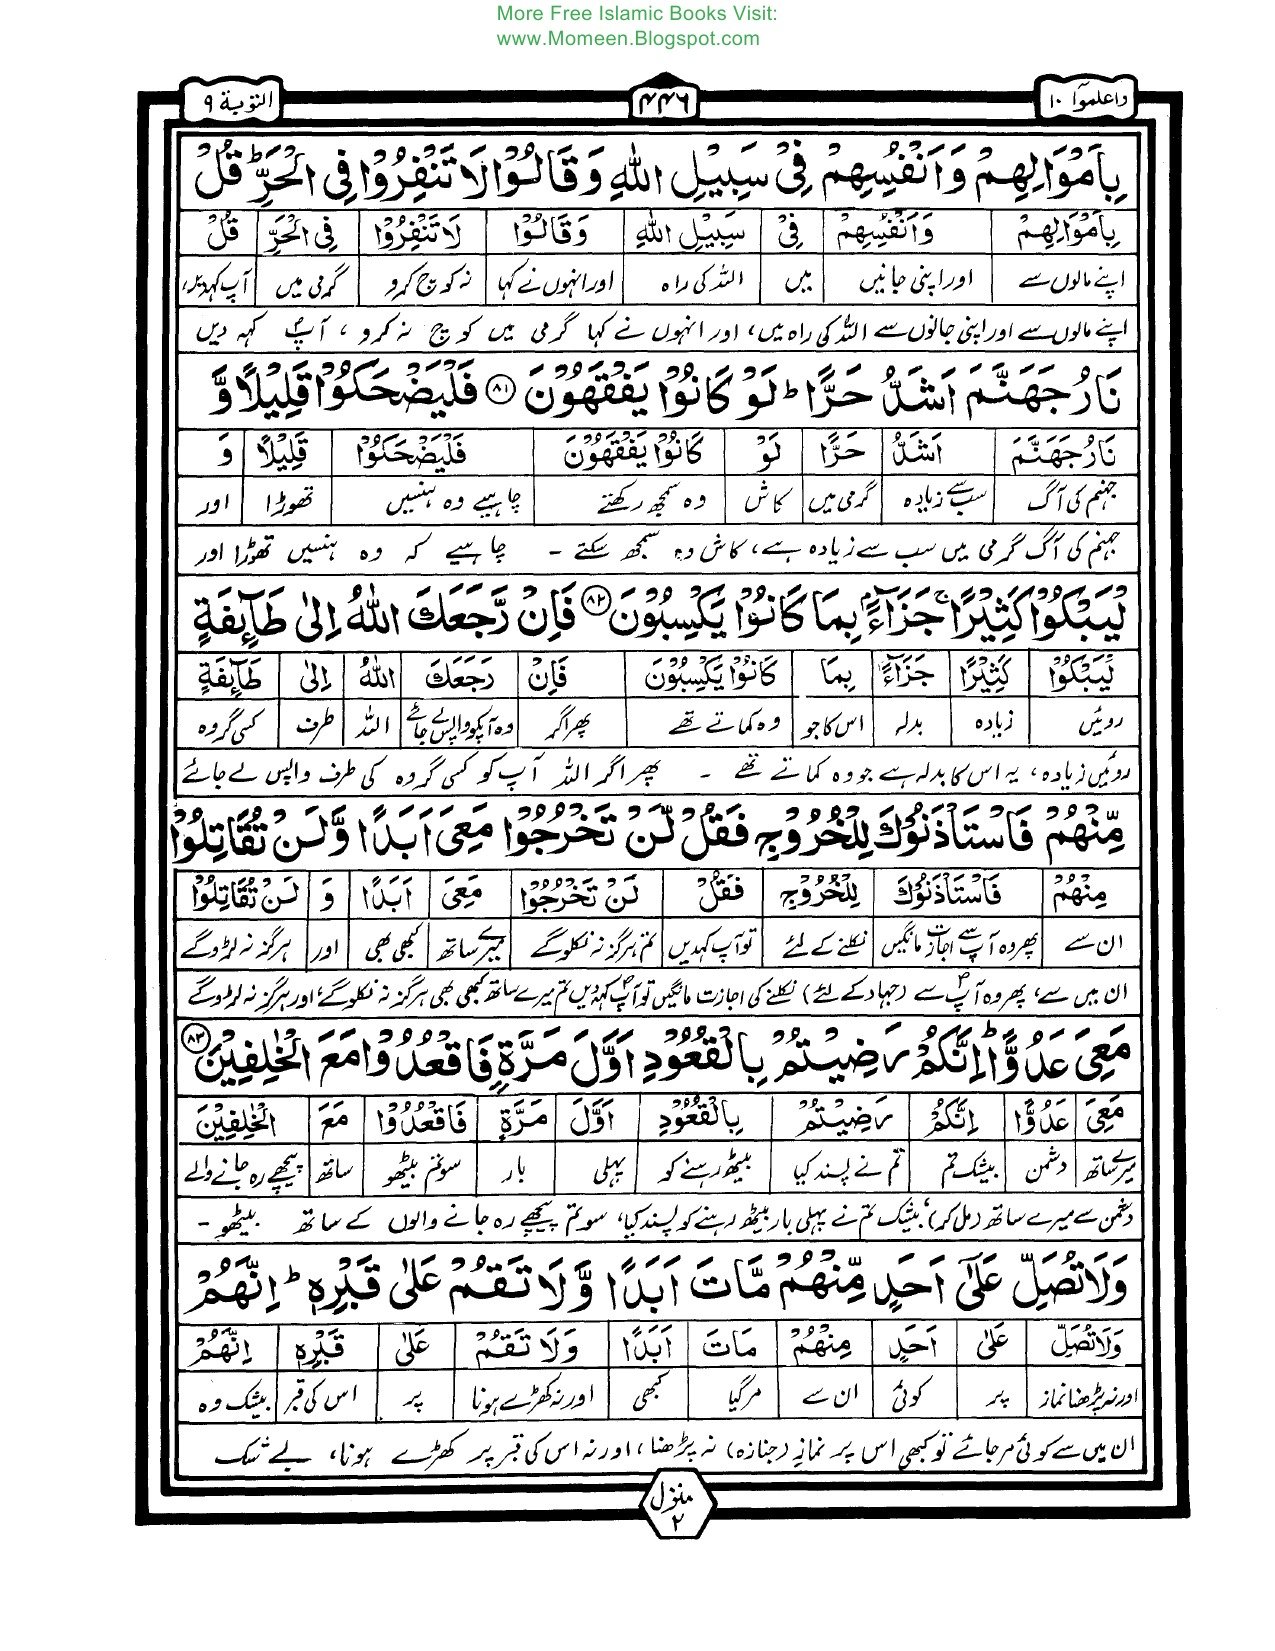 More Free Islamic Books Visit:
www.Momeen.Blogspot.com
واعلموا ١٠ ۴۴۶ التوبة ٩
بِاَمْوَالِهِمْ وَاَنْفُسِهِمْ فِیْ سَبِیْلِ اللّٰهِ وَقَالُوْا لَا تَنْفِرُوْا فِی الْحَرِّ ؕ قُلْ
بِاَمْوَالِهِمْ وَاَنْفُسِهِمْ فِیْ سَبِیْلِ اللّٰهِ وَقَالُوْا لَا تَنْفِرُوْا فِی الْحَرِّ قُلْ
اپنے مالوں سے اور اپنی جانیں میں اللہ کی راہ اور انہوں نے کہا نہ کوچ کرو گرمی میں آپ کہدیں
اپنے مالوں سے اور اپنی جانوں سے اللہ کی راہ میں، اور انہوں نے کہا گرمی میں کوچ نہ کرو ، آپؐ کہہ دیں
نَارُ جَهَنَّمَ اَشَدُّ حَرًّا ؕ لَوْ كَانُوْا یَفْقَهُوْنَ ۸۱ فَلْیَضْحَكُوْا قَلِیْلًا وَّ
نَارُ جَهَنَّمَ اَشَدُّ حَرًّا لَوْ كَانُوْا یَفْقَهُوْنَ فَلْیَضْحَكُوْا قَلِیْلًا وَ
جہنم کی آگ سب سے زیادہ گرمی میں کاش وہ سمجھ رکھتے چاہیے وہ ہنسیں تھوڑا اور
جہنم کی آگ گرمی میں سب سے زیادہ ہے، کاش وہ سمجھ سکتے - چاہیے کہ وہ ہنسیں تھوڑا اور
لْیَبْكُوْا كَثِیْرًا ۚ جَزَآءًۢ بِمَا كَانُوْا یَكْسِبُوْنَ ۸۲ فَاِنْ رَّجَعَكَ اللّٰهُ اِلٰی طَآىِٕفَةٍ
لْیَبْكُوْا كَثِیْرًا جَزَآءً بِمَا كَانُوْا یَكْسِبُوْنَ فَاِنْ رَجَعَكَ اللّٰهُ اِلٰی طَآىِٕفَةٍ
روئیں زیادہ بدلہ اس کا جو وہ کماتے تھے پھر اگر وہ آپکو واپس لے جائے اللہ طرف کسی گروہ
روئیں زیادہ، یہ اس کا بدلہ ہے جو وہ کماتے تھے - پھر اگر اللہ آپ کو کسی گروہ کی طرف واپس لے جائے
مِّنْهُمْ فَاسْتَاْذَنُوْكَ لِلْخُرُوْجِ فَقُلْ لَّنْ تَخْرُجُوْا مَعِیَ اَبَدًا وَّلَنْ تُقَاتِلُوْا
مِنْهُمْ فَاسْتَاْذَنُوْكَ لِلْخُرُوْجِ فَقُلْ لَنْ تَخْرُجُوْا مَعِیَ اَبَدًا وَ لَنْ تُقَاتِلُوْا
ان سے پھر وہ آپ سے اجازت مانگیں نکلنے کے لئے تو آپ کہدیں تم ہرگز نہ نکلو گے میرے ساتھ کبھی بھی اور ہرگز نہ لڑو گے
ان میں سے، پھر وہ آپؐ سے (جہاد کے لئے) نکلنے کی اجازت مانگیں تو آپؐ کہدیں تم میرے ساتھ کبھی بھی ہرگز نہ نکلو گے، اور ہرگز نہ لڑو گے
مَعِیَ عَدُوًّا ؕ اِنَّكُمْ رَضِیْتُمْ بِالْقُعُوْدِ اَوَّلَ مَرَّةٍ فَاقْعُدُوْا مَعَ الْخٰلِفِیْنَ ۸۳
مَعِیَ عَدُوًّا اِنَّكُمْ رَضِیْتُمْ بِالْقُعُوْدِ اَوَّلَ مَرَّةٍ فَاقْعُدُوْا مَعَ الْخٰلِفِیْنَ
میرے ساتھ دشمن بیشک تم تم نے پسند کیا بیٹھ رہنے کو پہلی بار سو تم بیٹھو ساتھ پیچھے رہ جانے والے
دشمن سے میرے ساتھ (مل کر)، بیشک تم نے پہلی بار بیٹھ رہنے کو پسند کیا، سو تم پیچھے رہ جانے والوں کے ساتھ بیٹھو -
وَلَا تُصَلِّ عَلٰۤی اَحَدٍ مِّنْهُمْ مَّاتَ اَبَدًا وَّلَا تَقُمْ عَلٰی قَبْرِهٖ ؕ اِنَّهُمْ
وَلَا تُصَلِّ عَلٰی اَحَدٍ مِنْهُمْ مَاتَ اَبَدًا وَلَا تَقُمْ عَلٰی قَبْرِهٖ اِنَّهُمْ
اور نہ پڑھنا نماز پر کوئی ان سے مرگیا کبھی اور نہ کھڑے ہونا پر اس کی قبر بیشک وہ
ان میں سے کوئی مرجائے تو کبھی اس پر نماز (جنازہ) نہ پڑھنا، اور نہ اس کی قبر پر کھڑے ہونا، بے شک
منزل
۲